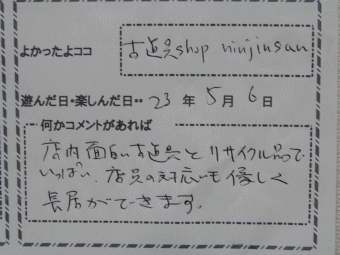 よかったよココ 古道具shop ninjinsan
遊んだ日・楽しんだ日・・ 23 年 5 月 6 日
何かコメントがあれば
店内面白い古道具とリサイクル品で
いっぱい、店員の対応も優しく
長居ができます。